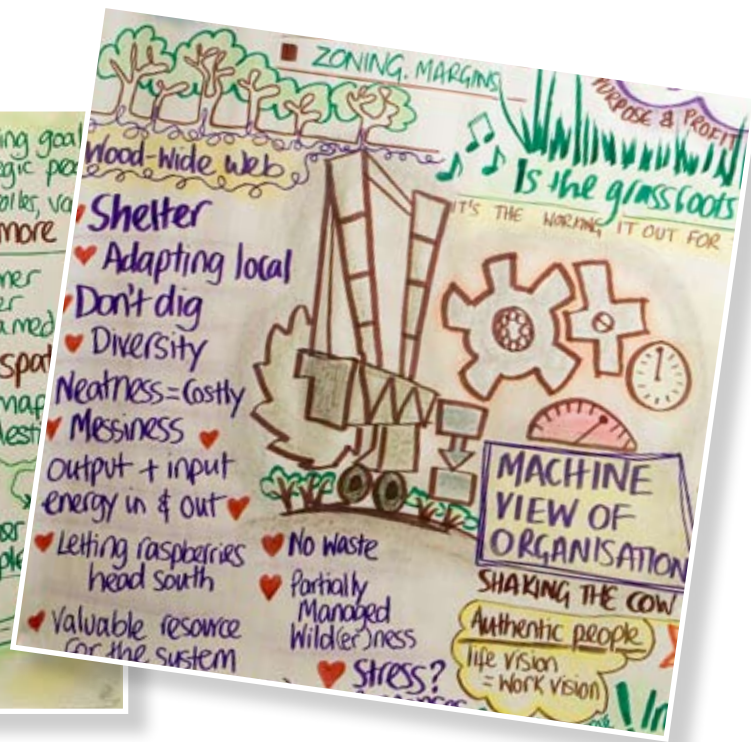 ZONING. MARGINS
PURPOSE & PROFIT
Wood-Wide Web
Is the grassroots
IT'S THE WORKING IT OUT FOR
Shelter
Adapting local
Don't dig
Diversity
Neatness = Costly
Messiness
output + input
energy in & out
Letting raspberries
head south
Valuable resource
for the system
No waste
Partially
Managed
Wild(er)ness
Stress?
MACHINE
VIEW OF
ORGANISATION
SHAKING THE COW
Authentic people
life vision
= work vision
more